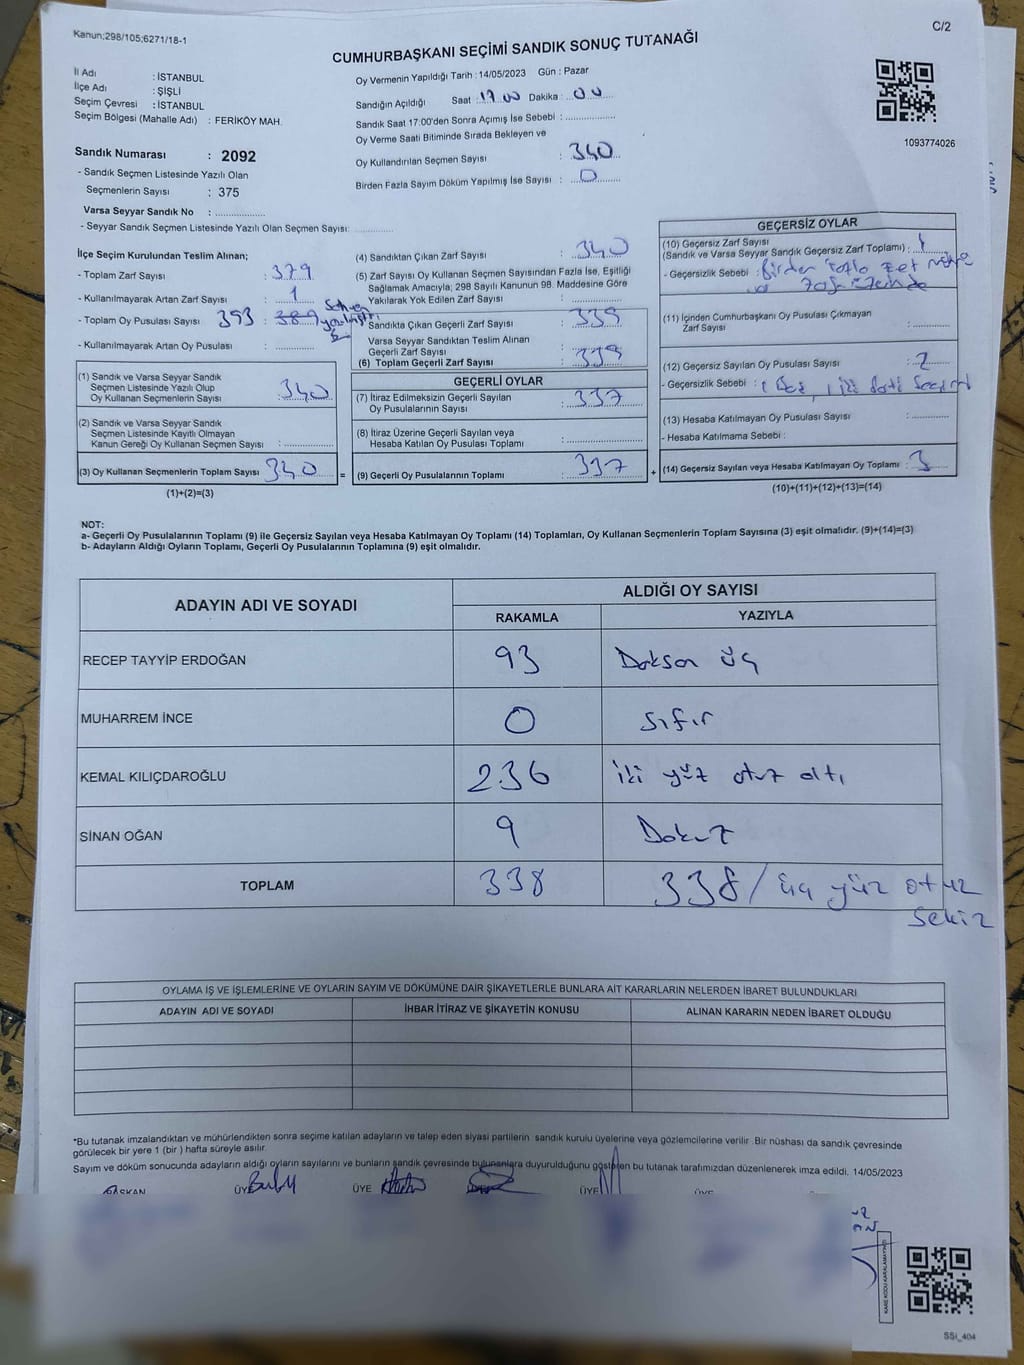 Kanun;298/105;6271/18-1
C/2
CUMHURBAŞKANI SEÇİMİ SANDIK SONUÇ TUTANAĞI
İl Adı : İSTANBUL
İlçe Adı : ŞİŞLİ
Seçim Çevresi : İSTANBUL
Seçim Bölgesi (Mahalle Adı) : FERİKÖY MAH.
Sandık Numarası : 2092
- Sandık Seçmen Listesinde Yazılı Olan
Seçmenlerin Sayısı : 375
Varsa Seyyar Sandık No : ....................
- Seyyar Sandık Seçmen Listesinde Yazılı Olan Seçmen Sayısı: ..............
Oy Vermenin Yapıldığı Tarih : 14/05/2023 Gün : Pazar
Sandığın Açıldığı Saat 17.00 Dakika : 00
Sandık Saat 17:00'den Sonra Açımış İse Sebebi : ....................
Oy Verme Saati Bitiminde Sırada Bekleyen ve
Oy Kullandırılan Seçmen Sayısı : 340
Birden Fazla Sayım Döküm Yapılmış İse Sayısı : 0
1093774026
İlçe Seçim Kurulundan Teslim Alınan;
- Toplam Zarf Sayısı : 379
- Kullanılmayarak Artan Zarf Sayısı : 1
- Toplam Oy Pusulası Sayısı 393 : 389
- Kullanılmayarak Artan Oy Pusulası : ..............
(1) Sandık ve Varsa Seyyar Sandık
Seçmen Listesinde Yazılı Olup
Oy Kullanan Seçmenlerin Sayısı : 340
(2) Sandık ve Varsa Seyyar Sandık
Seçmen Listesinde Kayıtlı Olmayan
Kanun Gereği Oy Kullanan Seçmen Sayısı : ..............
(3) Oy Kullanan Seçmenlerin Toplam Sayısı 340 =
(1)+(2)=(3)
(4) Sandıktan Çıkan Zarf Sayısı : 340
(5) Zarf Sayısı Oy Kullanan Seçmen Sayısından Fazla İse, Eşitliği
Sağlamak Amacıyla; 298 Sayılı Kanunun 98. Maddesine Göre
Yakılarak Yok Edilen Zarf Sayısı : ..............
Sandıkta Çıkan Geçerli Zarf Sayısı : 339
Varsa Seyyar Sandıktan Teslim Alınan
Geçerli Zarf Sayısı : ..............
(6) Toplam Geçerli Zarf Sayısı : 339
GEÇERLİ OYLAR
(7) İtiraz Edilmeksizin Geçerli Sayılan
Oy Pusulalarının Sayısı : 337
(8) İtiraz Üzerine Geçerli Sayılan veya
Hesaba Katılan Oy Pusulası Toplamı : ..............
(9) Geçerli Oy Pusulalarının Toplamı : 337 +
GEÇERSİZ OYLAR
(10) Geçersiz Zarf Sayısı
(Sandık ve Varsa Seyyar Sandık Geçersiz Zarf Toplamı) : 1
- Geçersizlik Sebebi : Birden fazla
(11) İçinden Cumhurbaşkanı Oy Pusulası Çıkmayan
Zarf Sayısı : ..............
(12) Geçersiz Sayılan Oy Pusulası Sayısı : 2
- Geçersizlik Sebebi : 1 Boş, 1 iki
(13) Hesaba Katılmayan Oy Pusulası Sayısı : ..............
- Hesaba Katılmama Sebebi :
(14) Geçersiz Sayılan veya Hesaba Katılmayan Oy Toplamı : 3
(10)+(11)+(12)+(13)=(14)
NOT:
a- Geçerli Oy Pusulalarının Toplamı (9) ile Geçersiz Sayılan veya Hesaba Katılmayan Oy Toplamı (14) Toplamları, Oy Kullanan Seçmenlerin Toplam Sayısına (3) eşit olmalıdır. (9)+(14)=(3)
b- Adayların Aldığı Oyların Toplamı, Geçerli Oy Pusulalarının Toplamına (9) eşit olmalıdır.
ADAYIN ADI VE SOYADI
ALDIĞI OY SAYISI
RAKAMLA YAZIYLA
RECEP TAYYİP ERDOĞAN 93 Doksan üç
MUHARREM İNCE 0 sıfır
KEMAL KILIÇDAROĞLU 236 iki yüz otuz altı
SİNAN OĞAN 9 Dokuz
TOPLAM 338 338 / üç yüz otuz
sekiz
OYLAMA İŞ VE İŞLEMLERİNE VE OYLARIN SAYIM VE DÖKÜMÜNE DAİR ŞİKAYETLERLE BUNLARA AİT KARARLARIN NELERDEN İBARET BULUNDUKLARI
ADAYIN ADI VE SOYADI İHBAR İTİRAZ VE ŞİKAYETİN KONUSU ALINAN KARARIN NEDEN İBARET OLDUĞU
*Bu tutanak imzalandıktan ve mühürlendikten sonra seçime katılan adayların ve talep eden siyasi partilerin sandık kurulu üyelerine veya gözlemcilerine verilir .Bir nüshası da sandık çevresinde
görülecek bir yere 1 (bir ) hafta süreyle asılır.
Sayım ve döküm sonucunda adayların aldığı oyların sayılarını ve bunların sandık çevresinde bulunanlara duyurulduğunu gösteren bu tutanak tarafımızdan düzenlenerek imza edildi. 14/05/2023
BAŞKAN ÜYE ÜYE ÜYE ÜYE ÜYE
KARE KODU KARALAMAYINIZ!
SSi_404